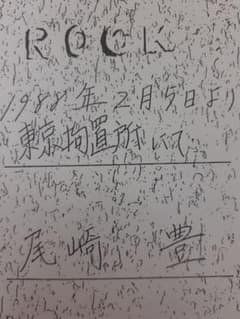 ROCK
1988年2月5日より
東京拘置所にて
尾崎豊